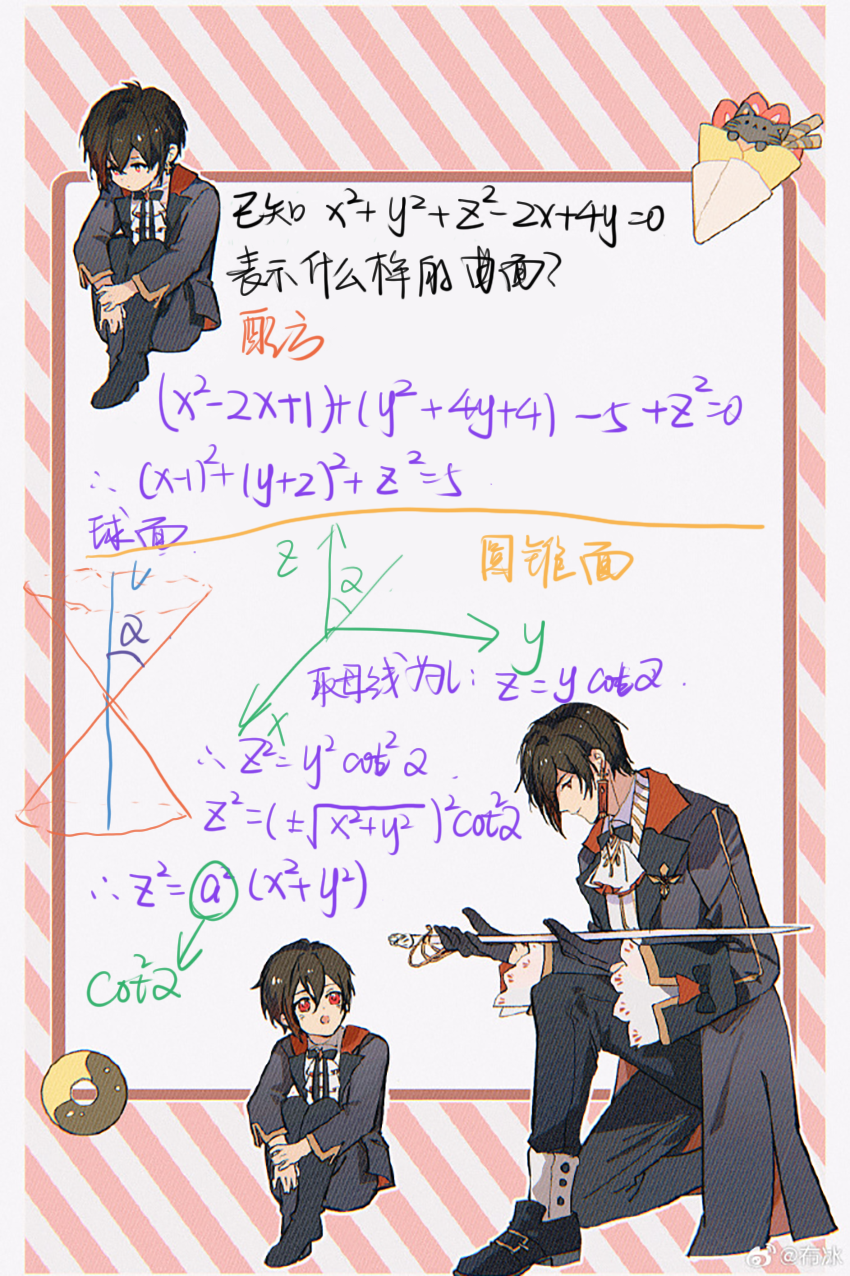 已知 x²+y²+z²-2x+4y=0
表示什么样的曲面?
配方
(x²-2x+1)+(y²+4y+4)-5+z²=0
∴ (x-1)²+(y+2)²+z²=5
球面
圆锥面
z
α
l
α
y
取母线为l: z=y cotα.
x
∴ z²=y²cot²α.
z²=(±√x²+y²)²cot²α
∴ z²=a²(x²+y²)
cot²α
@布冰